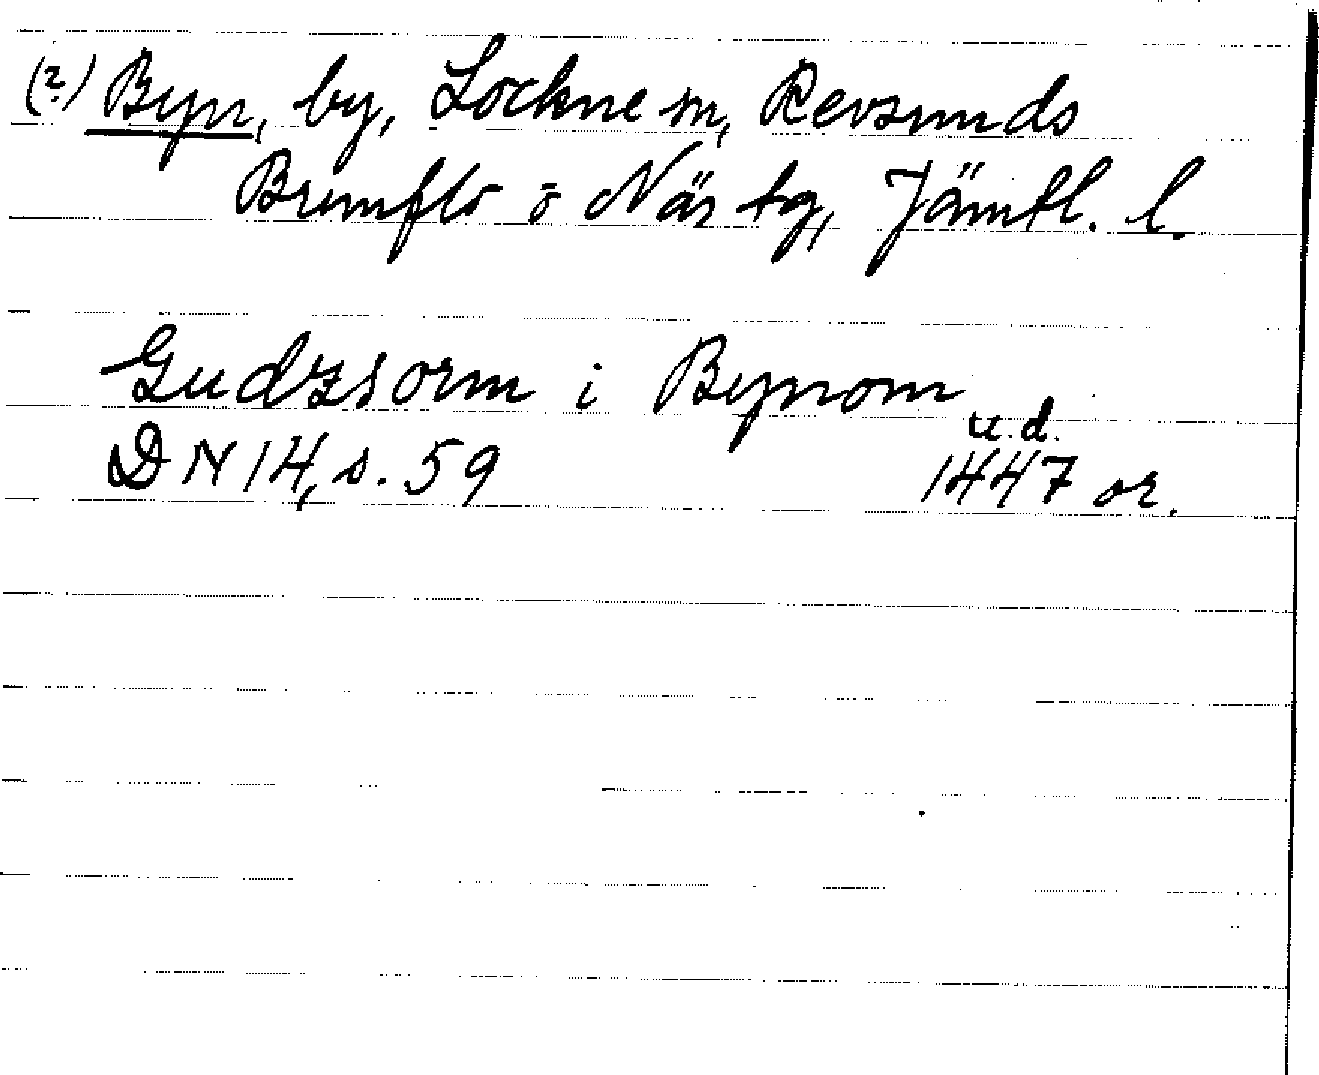 (?) Byn, by, Lockne sn, Revsunds
Brunflo o Näs tg, Jämtl. l.
Gudzsorm i Bynom
u.d.
DN 14, s. 59 1447 or.